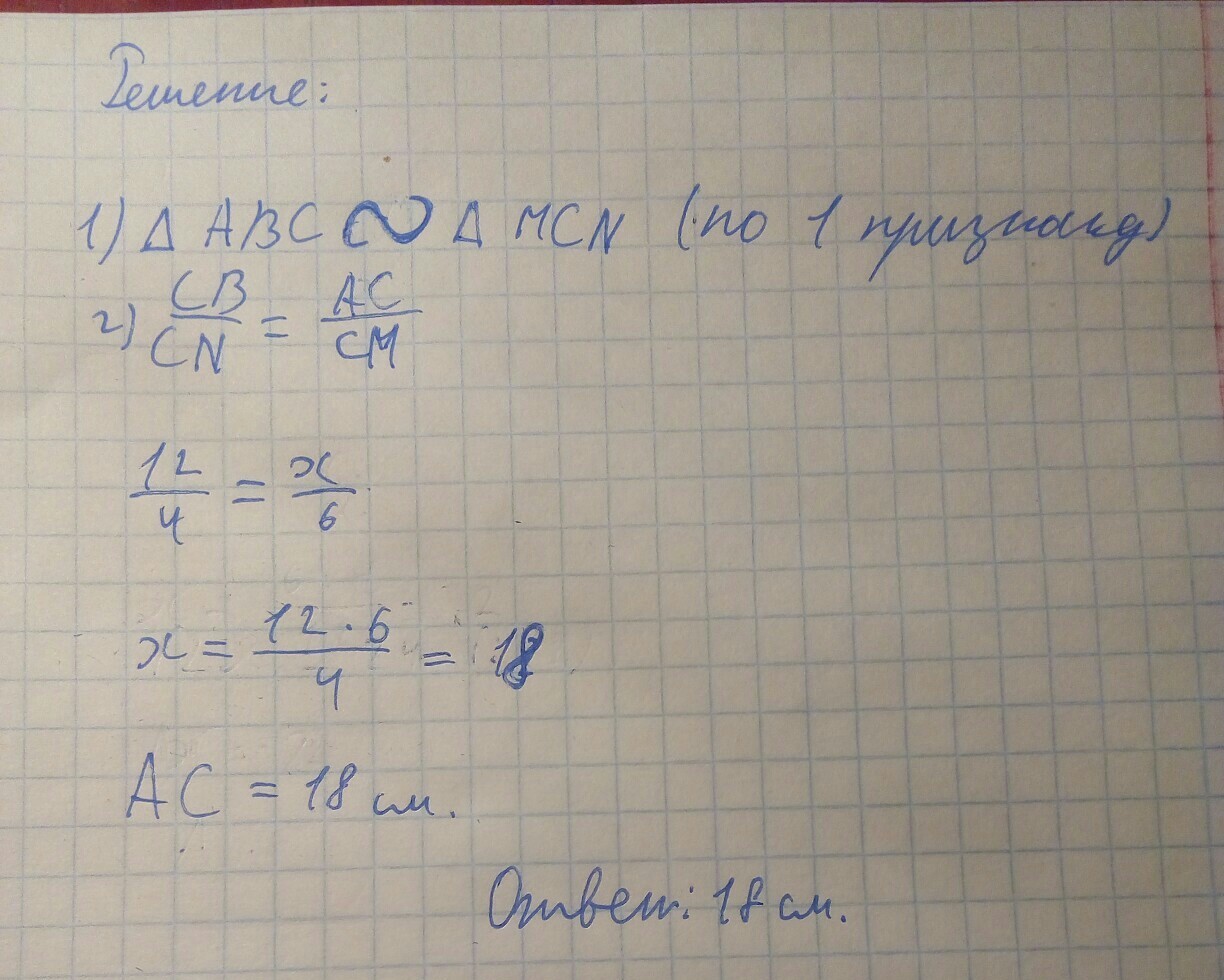 Решение:
1) Δ ABC ∾ Δ MCN (по 1 признаку)
2) CB/CN = AC/CM
12/4 = x/6
x = 12·6/4 = 18
AC = 18 см.
Ответ: 18 см.